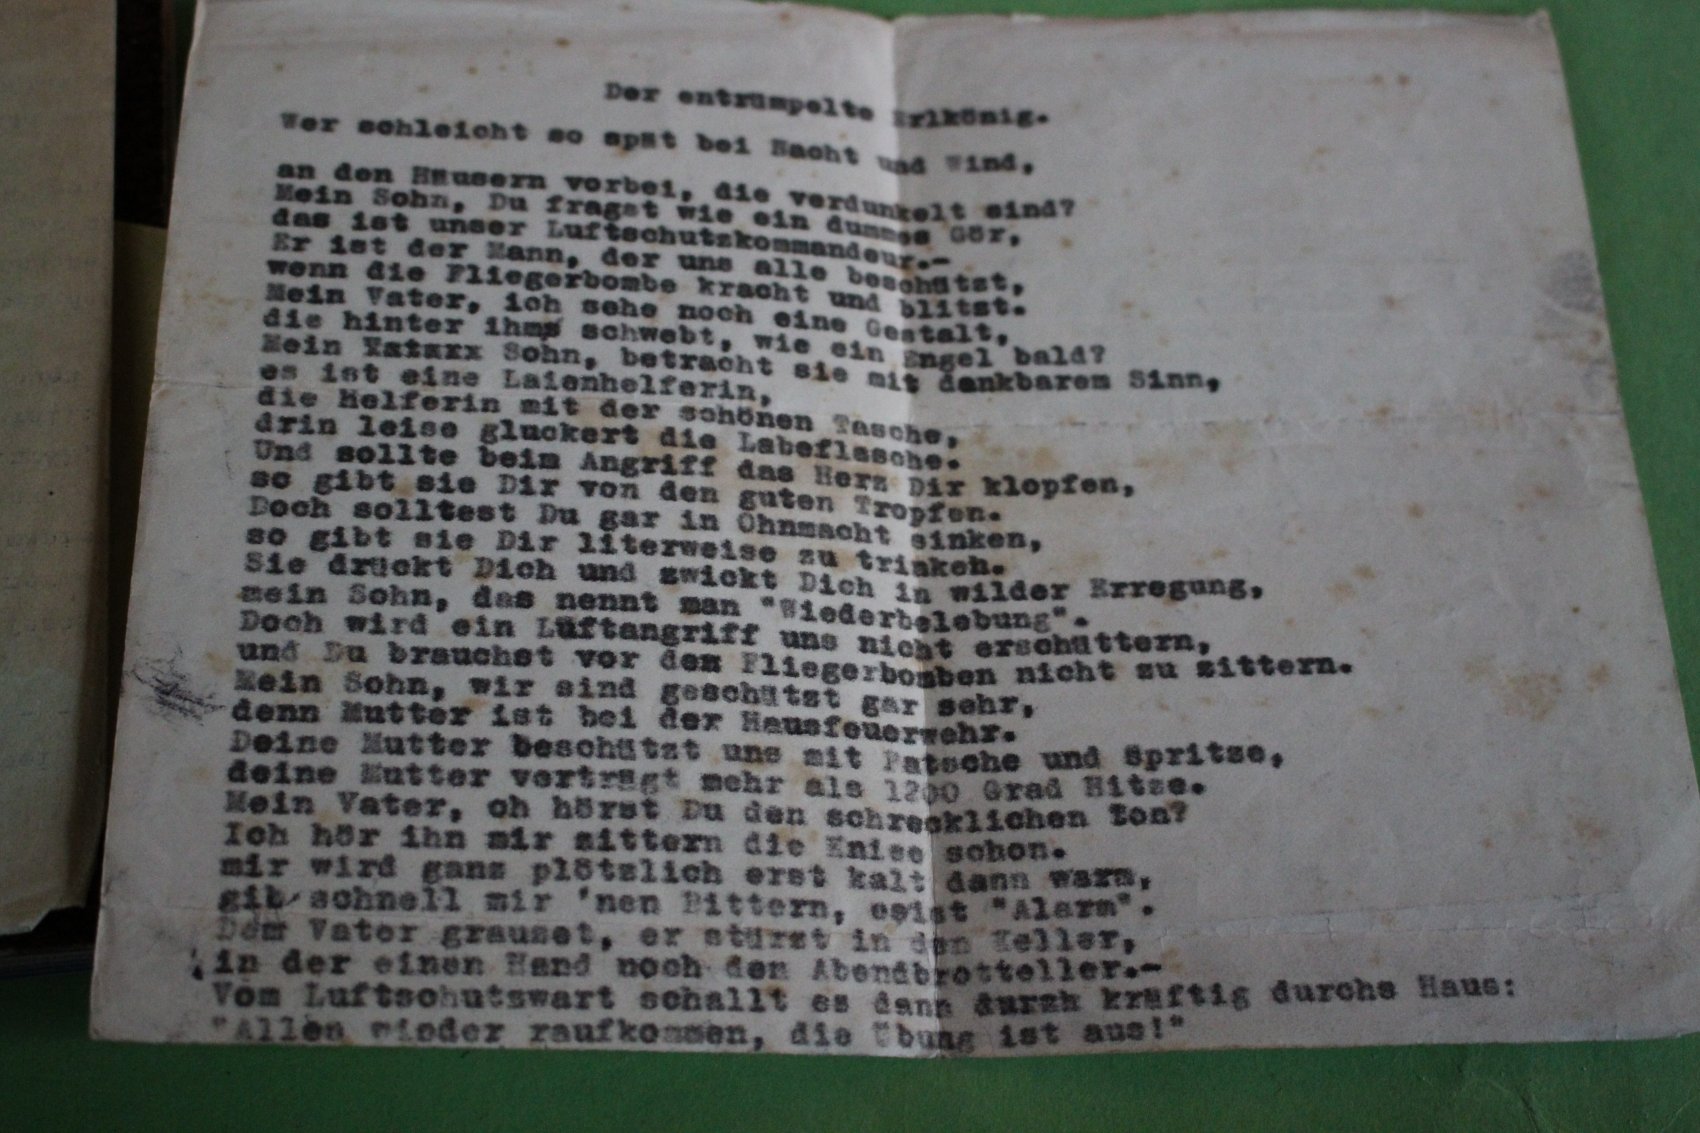 Der entrümpelte Erlkönig.
Wer schleicht so spät bei Nacht und Wind,
an den Häusern vorbei, die verdunkelt sind?
Mein Sohn, Du fragst wie ein dummes Gör,
das ist unser Luftschutzkommandeur.-
Er ist der Mann, der uns alle beschützt,
wenn die Fliegerbombe kracht und blitzt.
Mein Vater, ich sehe noch eine Gestalt,
die hinter ihm schwebt, wie ein Engel bald?
Mein Sohn, betracht sie mit dankbarem Sinn,
es ist eine Laienhelferin,
die Helferin mit der schönen Tasche,
drin leise gluckert die Labeflasche.
Und sollte beim Angriff das Herz Dir klopfen,
so gibt sie Dir von den guten Tropfen.
Doch solltest Du gar in Ohnmacht sinken,
so gibt sie Dir literweise zu trinken.
Sie drückt Dich und zwickt Dich in wilder Erregung,
mein Sohn, das nennt man "Wiederbelebung".
Doch wird ein Luftangriff uns nicht erschüttern,
und Du brauchst vor den Fliegerbomben nicht zu zittern.
Mein Sohn, wir sind geschützt gar sehr,
denn Mutter ist bei der Hausfeuerwehr.
Deine Mutter beschützt uns mit Patsche und Spritze,
deine Mutter verträgt mehr als 1200 Grad Hitze.
Mein Vater, oh hörst Du den schrecklichen Ton?
Ich hör ihn mir zittern die Kniee schon.
mir wird ganz plötzlich erst kalt dann warm,
gib schnell mir 'nen Bittern, esist "Alarm".
Dem Vater grauset, er stürzt in den Keller,
in der einen Hand noch den Abendbrotteller.-
Vom Luftschutzwart schallt es dann kräftig durchs Haus:
"Allen wieder raufkommen, die Übung ist aus!"